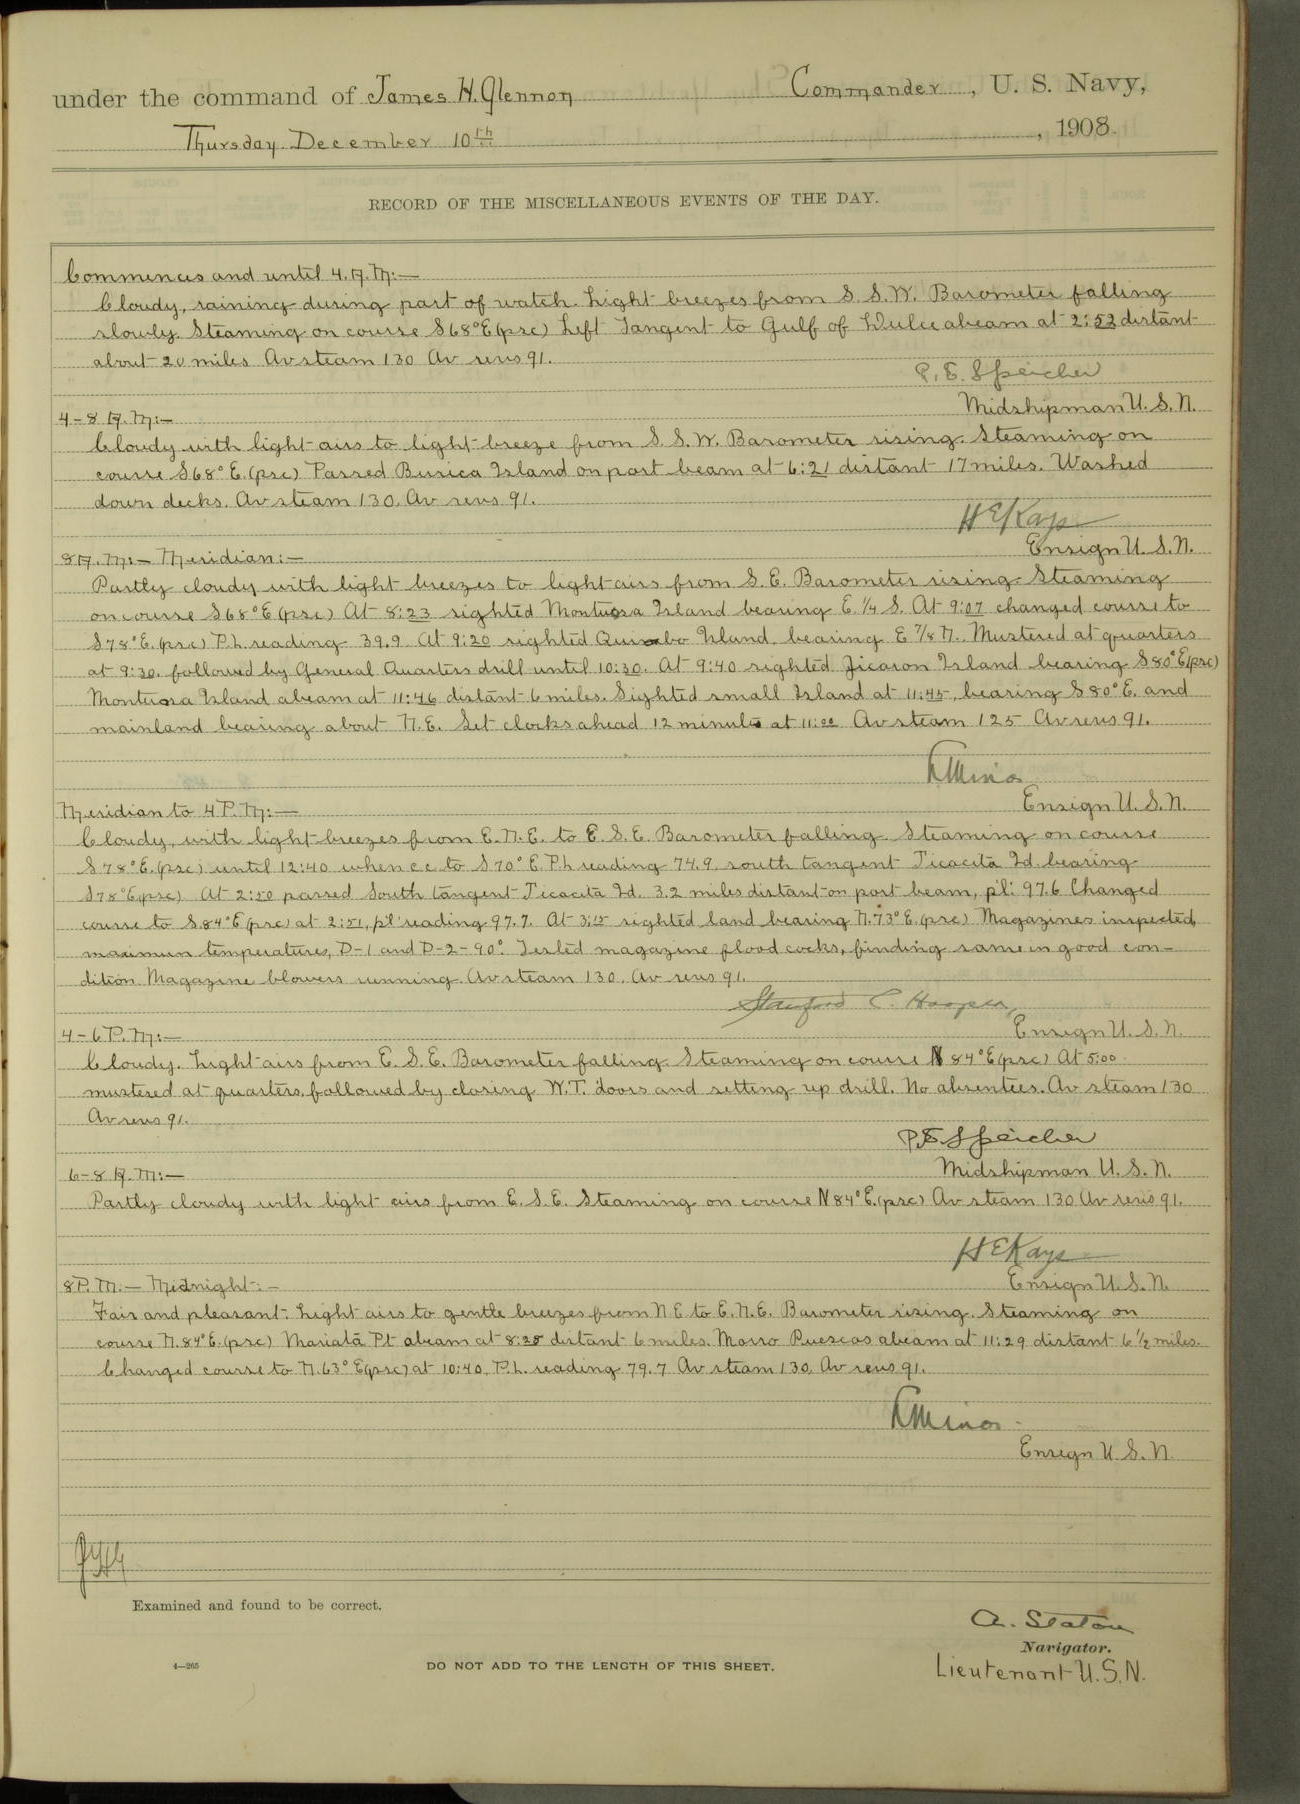 under the command of James H. Glennon Commander, U. S. Navy,
Thursday December 10th, 1908.
RECORD OF THE MISCELLANEOUS EVENTS OF THE DAY.
Commences and until 4. A. M:—
Cloudy, raining during part of watch. Light breezes from S. S. W. Barometer falling
slowly. Steaming on course S68°E(psc) Left Tangent to Gulf of Dulce abeam at 2:53 distant
about 20 miles Av steam 130 Av revs 91.
P. E. Speicher
Midshipman U. S. N.
4-8 A. M:—
Cloudy with light airs to light breeze from S. S. W. Barometer rising. Steaming on
course S68°E. (psc) Passed Burica Island on port beam at 6:21 distant 17 miles. Washed
down decks. Av steam 130. Av revs 91.
H E Kays
Ensign U. S. N.
8 A. M:— Meridian:—
Partly cloudy with light breezes to light airs from S. E. Barometer rising. Steaming
on course S68°E(psc) At 8:23 sighted Montuosa Island bearing E. 1/4 S. At 9:07 changed course to
S78°E. (psc) P.L. reading 39.9. At 9:20 sighted Quicabo Island bearing E 7/8 N. Mustered at quarters
at 9:30. followed by General Quarters drill until 10:30. At 9:40 sighted Jicaron Island bearing S80°E(psc)
Montuosa Island abeam at 11:46 distant 6 miles. Sighted small Island at 11:45, bearing S80°E. and
mainland bearing about N. E. Set clocks ahead 12 minutes at 11:00 Av steam 125 Av revs 91.
Ensign U. S. N.
Meridian to 4 P. M:—
Cloudy, with light breezes from E. N. E. to E. S. E. Barometer falling. Steaming on course
S78°E. (psc) until 12:40 when c c to S70°E. P.L reading 74.9. south tangent Jicacita Id. bearing
S78°E(psc) At 2:50 passed South tangent Jicacita Id. 3.2 miles distant on port beam, p'l: 97.6 Changed
course to S.84°E(psc) at 2:51, p'l' reading 97.7. At 3:15 sighted land bearing N.73°E. (psc) Magazines inspected,
maximum temperatures, D-1 and D-2-90°. Tested magazine flood cocks, finding same in good con-
dition. Magazine blowers running. Av steam 130. Av revs 91.
Stanford C. Hooper,
Ensign U. S. N.
4-6 P. M:—
Cloudy. Light airs from E. S. E. Barometer falling. Steaming on course N 84°E(psc) At 5:00
mustered at quarters, followed by closing W.T. doors and setting up drill. No absentees. Av steam 130
Av revs 91.
P. E. Speicher
Midshipman U. S. N.
6-8 A. M:—
Partly cloudy with light airs from E. S. E. Steaming on course N84°E. (psc) Av steam 130 Av revs 91.
H E Kays
Ensign U. S. N.
8 P. M:— Midnight:—
Fair and pleasant. Light airs to gentle breezes from N E to E. N. E. Barometer rising. Steaming on
course N.84°E. (psc) Mariata Pt abeam at 8:25 distant 6 miles. Morro Puercos abeam at 11:29 distant 6 1/2 miles.
Changed course to N.63°E(psc) at 10:40, P.L. reading 79.7 Av steam 130, Av revs 91.
Ensign U. S. N.
JHG
Examined and found to be correct.
A. Staton
Navigator.
4—265
DO NOT ADD TO THE LENGTH OF THIS SHEET.
Lieutenant U.S.N.